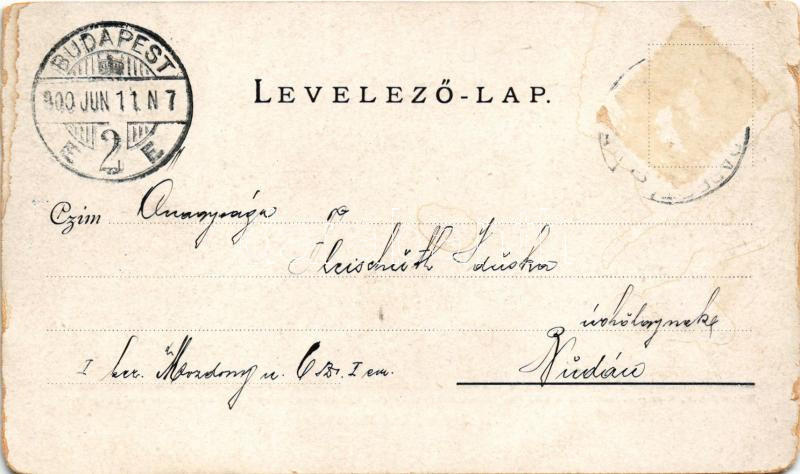 BUDAPEST
900 JUN 11. N 7
2
LEVELEZŐ-LAP.
Czim Önagysága
Fleischúth Iduska
úrhölgynek
Budán
I ker. Mozdony u. 6 sz. I em.